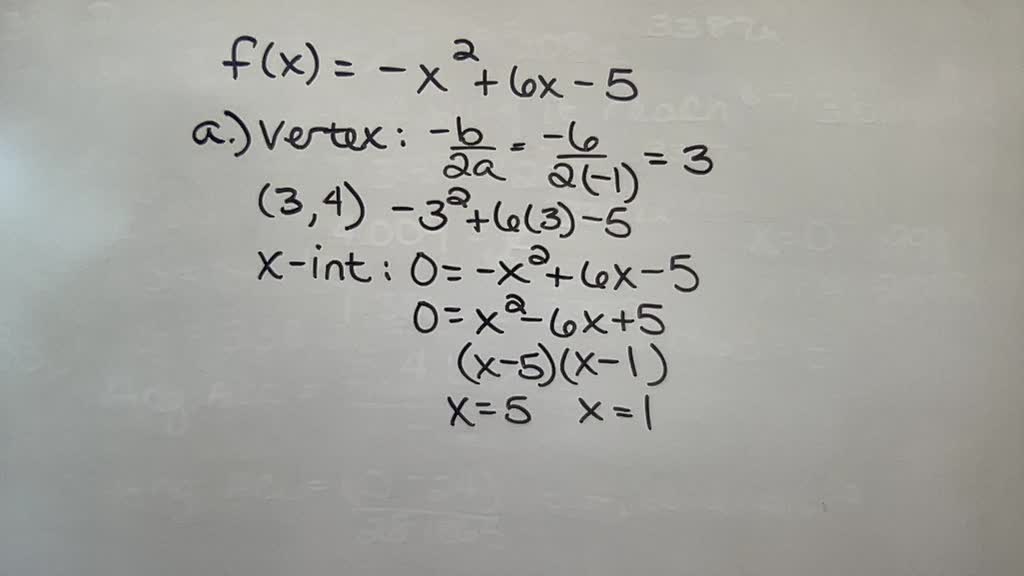 f(x) = -x² + 6x - 5
a.) Vertex: -b/2a = -6/2(-1) = 3
(3,4) -3² + 6(3) - 5
x-int: 0 = -x² + 6x - 5
0 = x² - 6x + 5
(x-5)(x-1)
x = 5 x = 1